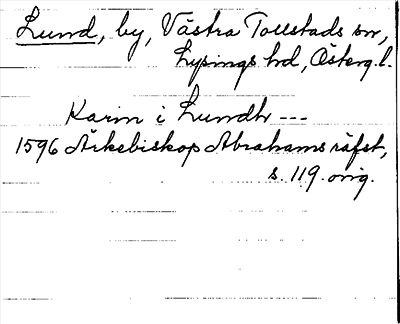 Lund, by, Västra Tollstads sn,
Lysings hd, Österg. l.
Karin i Lundh ---
1596 Ärkebiskop Abrahams räfst,
s. 119. orig.